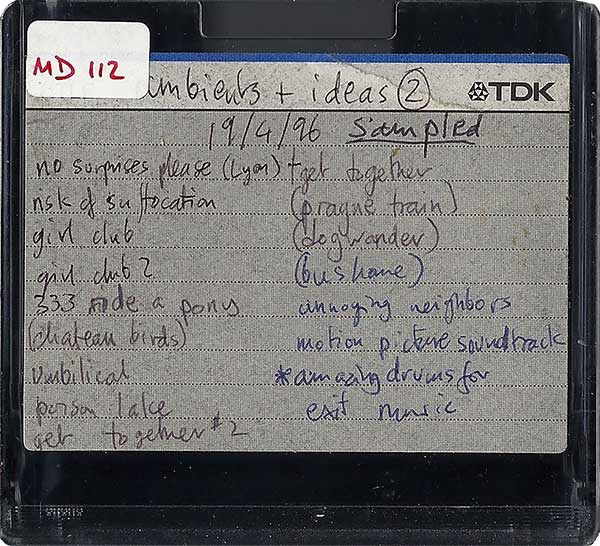 MD 112
ambients + ideas 2
TDK
19/4/96 Sampled
no surprises please (Lyon) + get together
risk of suffocation (prague train)
girl club (dogwander)
girl club 2 (bus home)
333 ride a pony annoying neighbors
(chateau birds) motion picture soundtrack
umbilical *amazing drums for
poison lake exit music
get together #2